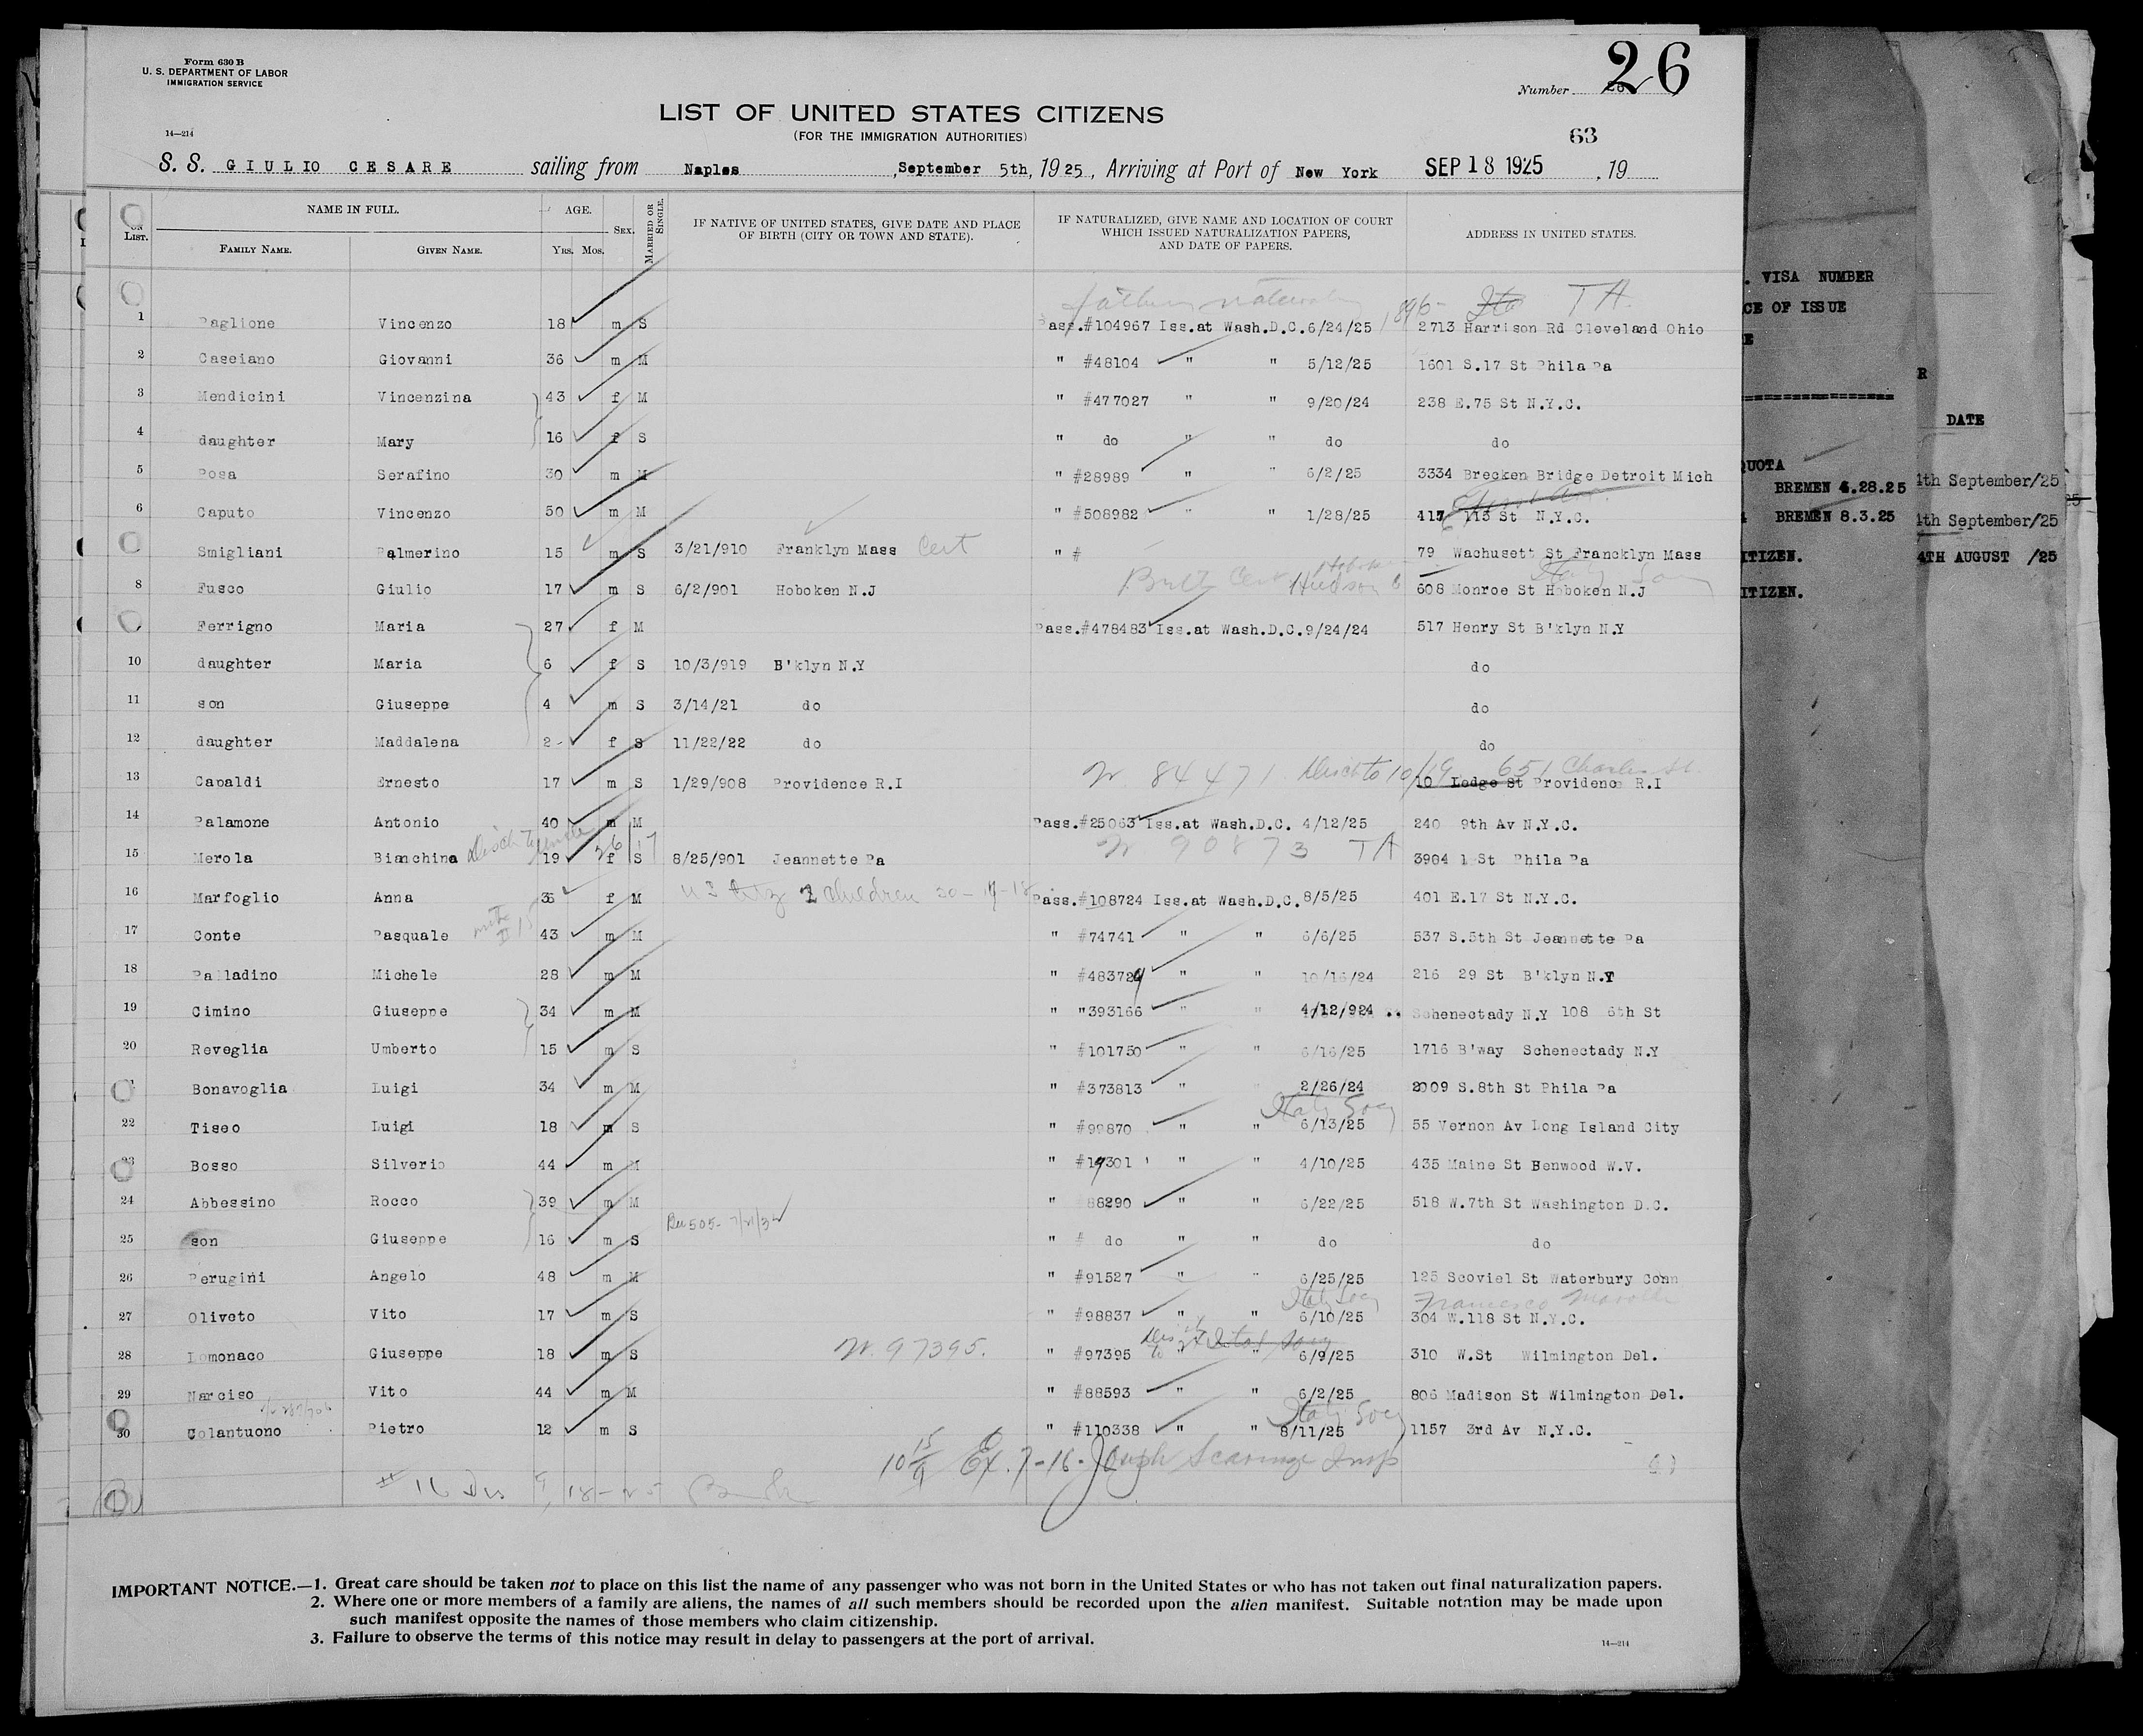 Form 630 B
U. S. DEPARTMENT OF LABOR
IMMIGRATION SERVICE
Number 26
LIST OF UNITED STATES CITIZENS
(FOR THE IMMIGRATION AUTHORITIES)
14—214
63
S. S. GIULIO CESARE sailing from Naples, September 5th, 1925, Arriving at Port of New York SEP 18 1925, 19
ON LIST. NAME IN FULL. FAMILY NAME. GIVEN NAME. AGE. Yrs. Mos. SEX. MARRIED OR SINGLE. IF NATIVE OF UNITED STATES, GIVE DATE AND PLACE OF BIRTH (CITY OR TOWN AND STATE). IF NATURALIZED, GIVE NAME AND LOCATION OF COURT WHICH ISSUED NATURALIZATION PAPERS, AND DATE OF PAPERS. ADDRESS IN UNITED STATES.
father 1896- Ita TA.
1 Paglione Vincenzo 18 m S Pass.#104967 Iss.at Wash.D.C.6/24/25 2713 Harrison Rd Cleveland Ohio
2 Casciano Giovanni 36 m M " #48104 " " 5/12/25 1601 S.17 St Phila Pa
3 Mendicini Vincenzina 43 f M " #477027 " " 9/20/24 238 E.75 St N.Y.C.
4 daughter Mary 16 f S " do " " do do
5 Rosa Serafino 30 m M " #28989 " " 6/2/25 3334 Brecken Bridge Detroit Mich
6 Caputo Vincenzo 50 m M " #508982 " " 1/28/25 417 113 St N.Y.C.
Smigliani Palmerino 15 m S 3/21/910 Franklyn Mass Cert " # 79 Wachusett St Francklyn Mass
Birth Cert Hoboken Hudson Italy Soc
8 Fusco Giulio 17 m S 6/2/901 Hoboken N.J 608 Monroe St Hoboken N.J
Ferrigno Maria 27 f M Pass.#478483 Iss.at Wash.D.C.9/24/24 517 Henry St B'klyn N.Y
10 daughter Maria 6 f S 10/3/919 B'klyn N.Y do
11 son Giuseppe 4 m S 3/14/21 do do
12 daughter Maddalena 2 f S 11/22/22 do do
W 84471 Disch to 10/19 651 Charles St.
13 Capaldi Ernesto 17 m S 1/29/908 Providence R.I 10 Ledge St Providence R.I
14 Palamone Antonio 40 m M Pass.#25063 Iss.at Wash.D.C. 4/12/25 240 9th Av N.Y.C.
Disch to uncle 26/17 W 90873 TA
15 Merola Bianchina 19 f S 8/25/901 Jeannette Pa 3984 1 St Phila Pa
16 Marfoglio Anna 36 f M 2 children Pass.#108724 Iss.at Wash.D.C.8/5/25 401 E.17 St N.Y.C.
17 Conte Pasquale 43 m M " #74741 " " 6/6/25 537 S.5th St Jeannette Pa
18 Palladino Michele 28 m M " #483724 " " 10/16/24 216 29 St B'klyn N.Y
19 Cimino Giuseppe 34 m M " "393166 " " 4/12/924 Schenectady N.Y 108 6th St
20 Reveglia Umberto 15 m S " #101750 " " 6/16/25 1716 B'way Schenectady N.Y
Bonavoglia Luigi 34 m M " #373813 " 2/26/24 2009 S.8th St Phila Pa
Italy Socy
22 Tiseo Luigi 18 m S " #99870 " " 6/13/25 55 Vernon Av Long Island City
23 Bosso Silverio 44 m M " #19301 " " 4/10/25 435 Maine St Benwood W.V.
24 Abbessino Rocco 39 m M " 88290 " " 6/22/25 518 W.7th St Washington D.C.
25 son Giuseppe 16 m S " # do " " do do
26 Perugini Angelo 48 m M " #91527 " " 6/25/25 125 Scoviel St Waterbury Conn
Italy Socy Francesco
27 Oliveto Vito 17 m S " #98837 " " 6/10/25 304 W.118 St N.Y.C.
28 Lomonaco Giuseppe 18 m S W.97395. " #97395 " " 6/9/25 310 W.St Wilmington Del.
29 Narciso Vito 44 m M " #88593 " " 6/2/25 806 Madison St Wilmington Del.
Italy Socy
30 Colantuono Pietro 12 m S " #110338 " " 8/11/25 1157 3rd Av N.Y.C.
Ex. 7-16- Joseph Scaringe Insp
IMPORTANT NOTICE.—1. Great care should be taken not to place on this list the name of any passenger who was not born in the United States or who has not taken out final naturalization papers.
2. Where one or more members of a family are aliens, the names of all such members should be recorded upon the alien manifest. Suitable notation may be made upon
such manifest opposite the names of those members who claim citizenship.
3. Failure to observe the terms of this notice may result in delay to passengers at the port of arrival.
14—214
VISA NUMBER
CE OF ISSUE
R
DATE
QUOTA
BREMEN 4.28.25
1th September/25
BREMEN 8.3.25
4th September/25
ITIZEN.
4TH AUGUST /25
ITIZEN.